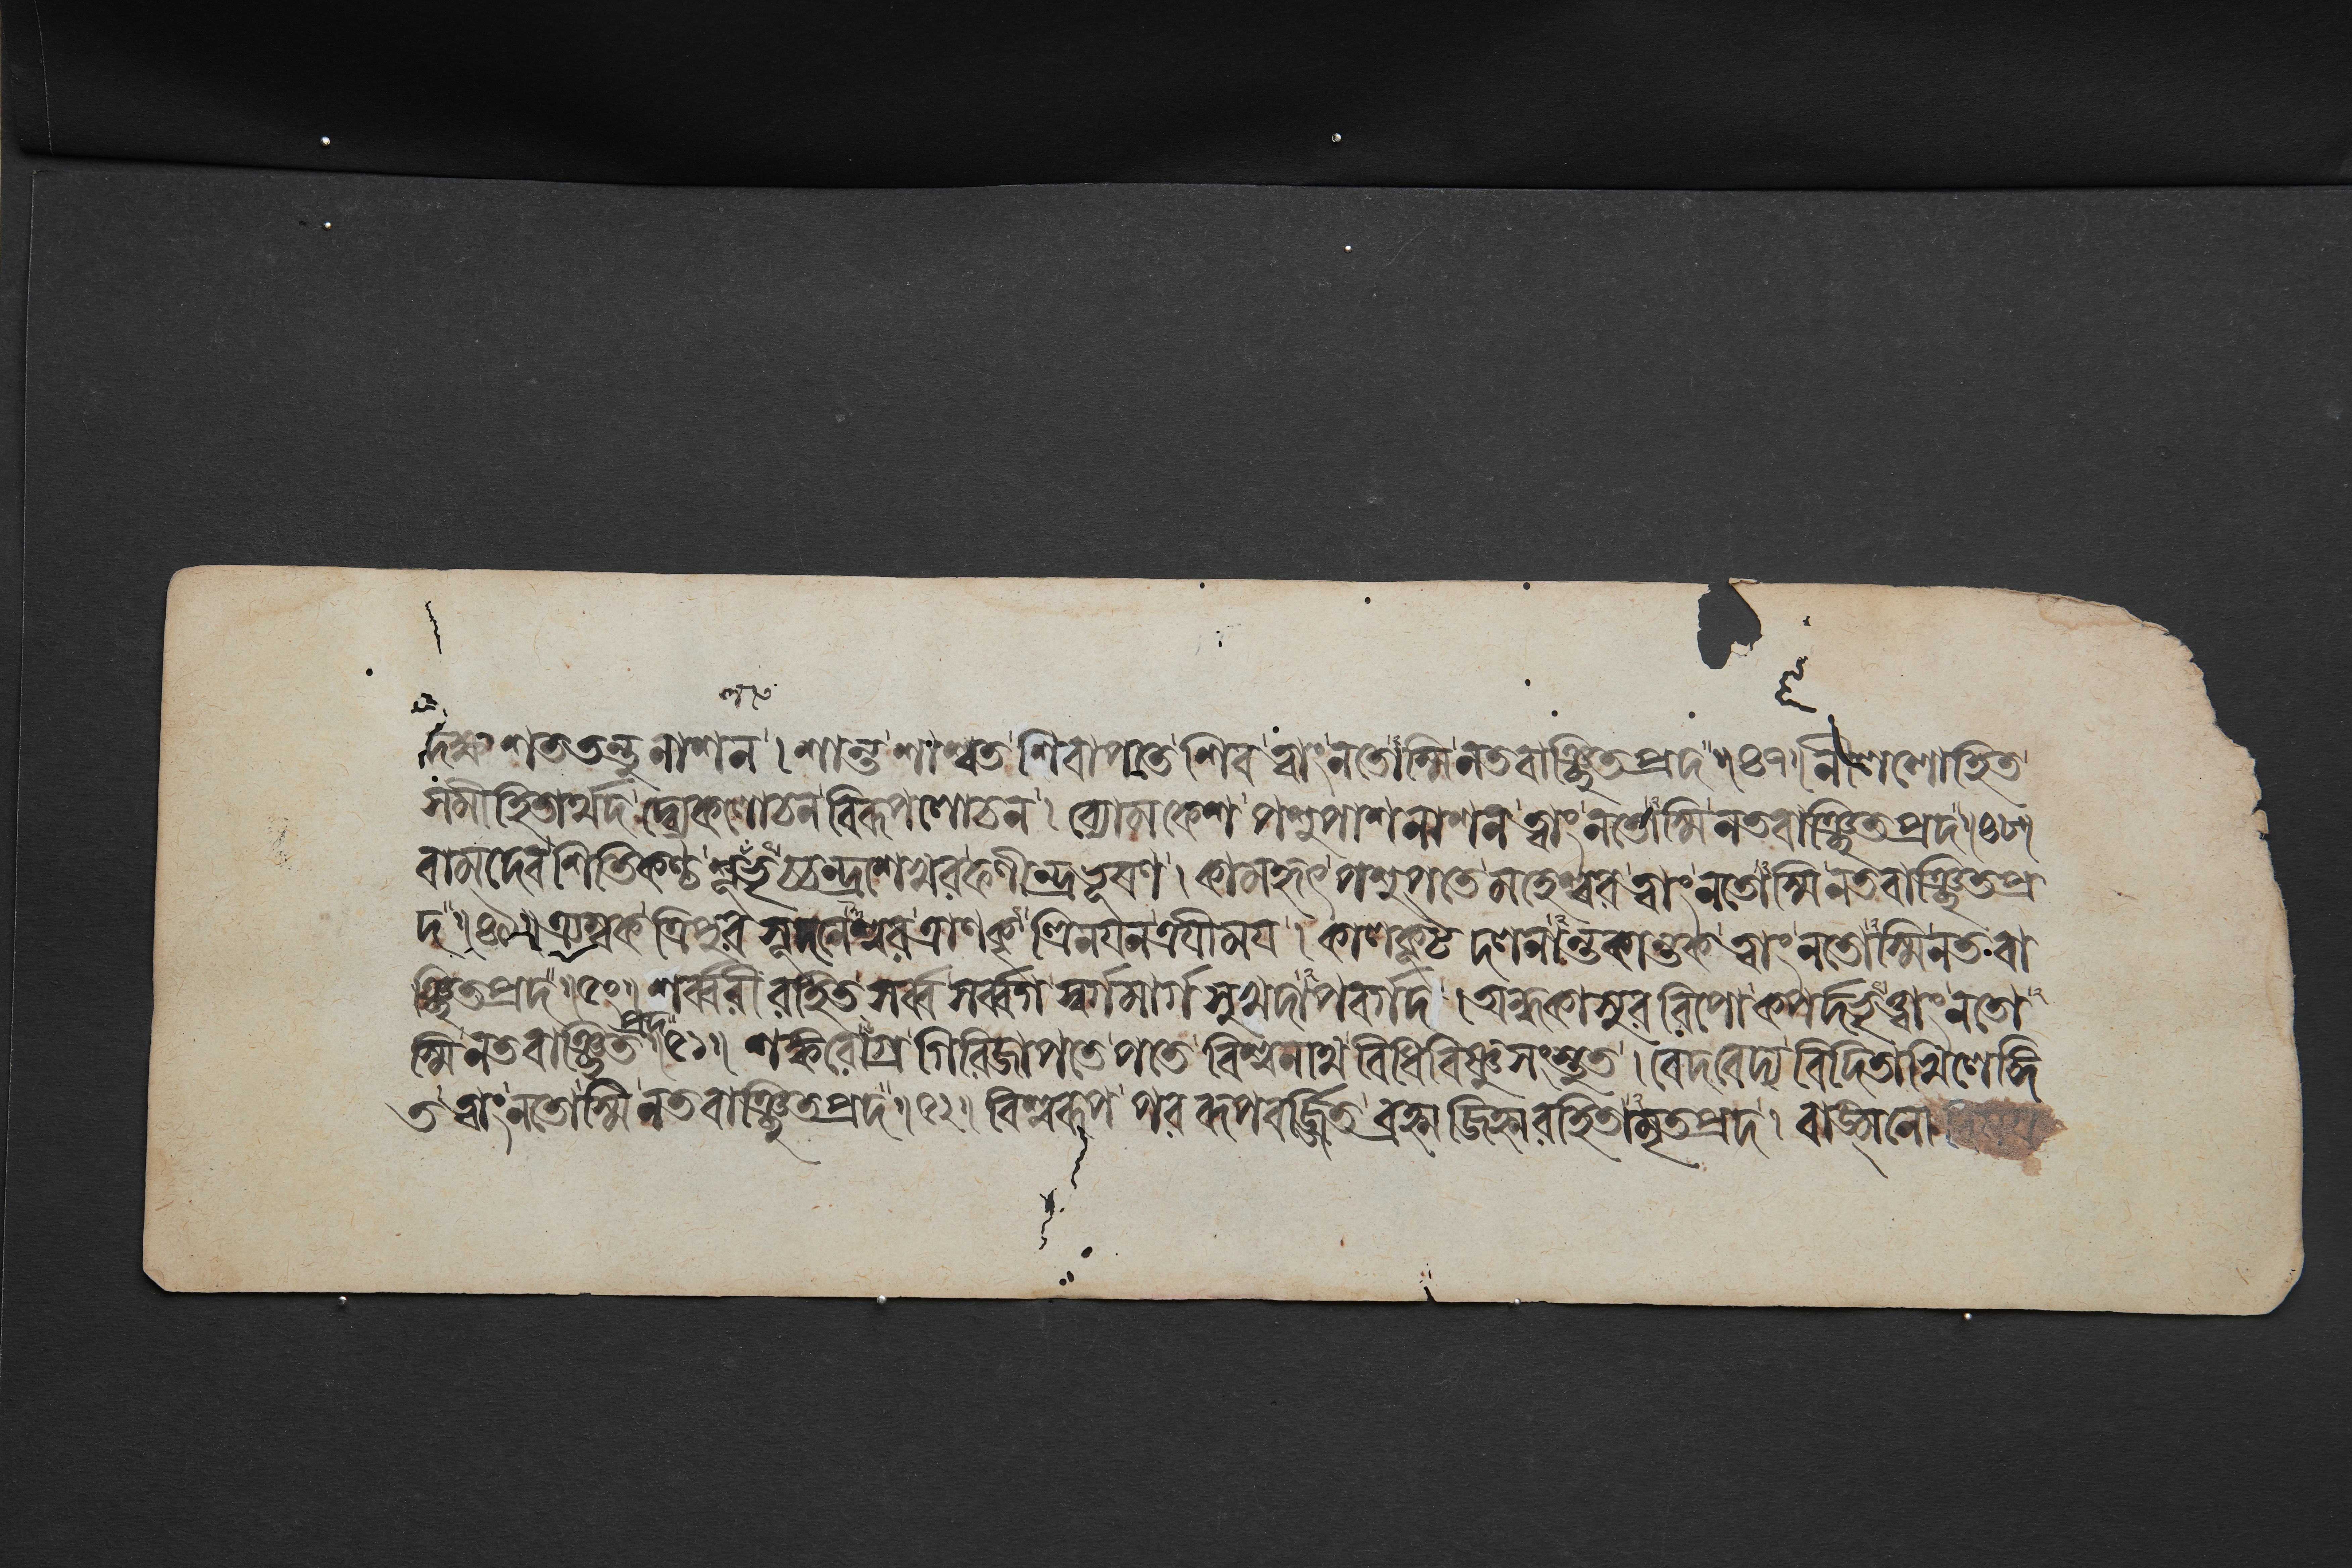 দক্ষ শততন্তুনাশন । শান্ত শাশ্বত শিবাপতে শিব ত্বাং নতোস্মি নতবাঞ্ছিতপ্রদ ॥৪৭॥ নীললোহিত
সমীহিতার্থদ দ্ব্যেকলোচন বিরূপলোচন । ব্যোমকেশ পশুপাশনাশন ত্বাং নতোস্মি নতবাঞ্ছিতপ্রদ ॥৪৮॥
বামদেব শিতিকণ্ঠ শূলভৃচ্চন্দ্রশেখর ফণীন্দ্রভূষণ । কামকৃৎ পশুপতে মহেশ্বর ত্বাং নতোস্মি নতবাঞ্ছিতপ্র
দ ॥৪৯॥ ত্র্যম্বক ত্রিপুরসূদনেশ্বর ত্রাণকৃত্ত্রিনযন ত্রযীময । কালকূট দলনান্তকান্তক ত্বাং নতোস্মি নতবা
ঞ্ছিতপ্রদ ॥৫০॥ শর্ব্বরীরহিত সর্ব্ব সর্ব্বগ স্বর্গমার্গ সুখদাপবর্গদ । অন্ধকাসুররিপো কপর্দভৃত্ত্বাং নতো
স্মি নতবাঞ্ছিতপ্রদ ॥৫১॥ শঙ্করোগ্র গিরিজাপতে পতে বিশ্বনাথ বিধিবিষ্ণুসংস্তুত । বেদবেদ্য বিদিতাখিলেঙ্গি
ত ত্বাং নতোস্মি নতবাঞ্ছিতপ্রদ ॥৫২॥ বিশ্বরূপ পররূপবর্জ্জিত ব্রহ্ম জিহ্মরহিতামৃতপ্রদ । বাঙ্মনো